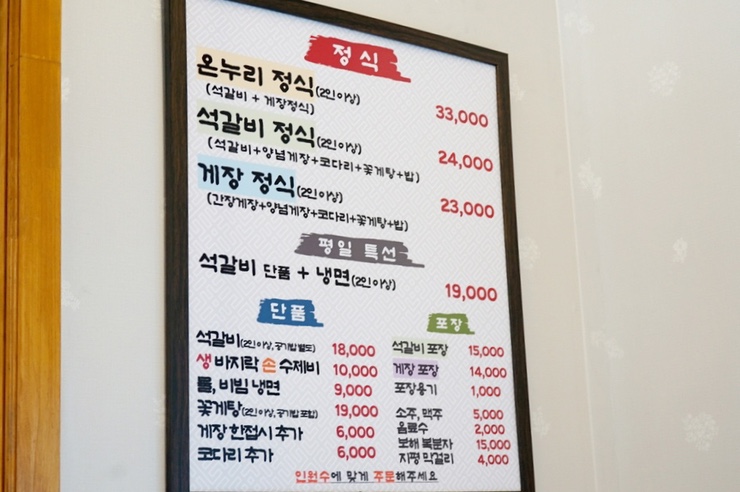 정식
온누리 정식(2인 이상) 33,000
(석갈비 + 게장정식)
석갈비 정식(2인 이상) 24,000
(석갈비+양념게장+코다리+꽃게탕+밥)
게장 정식(2인 이상) 23,000
(간장게장+양념게장+코다리+꽃게탕+밥)
평일 특선
석갈비 단품 + 냉면(2인 이상) 19,000
단품
석갈비(2인 이상, 공기밥 별도) 18,000
생 바지락 손 수제비 10,000
물, 비빔 냉면 9,000
꽃게탕(2인 이상, 공기밥 포함) 19,000
게장 한접시 추가 6,000
코다리 추가 6,000
포장
석갈비 포장 15,000
게장 포장 14,000
포장용기 1,000
소주, 맥주 5,000
음료수 2,000
보해 복분자 15,000
지평 막걸리 4,000
인원수에 맞게 주문해주세요